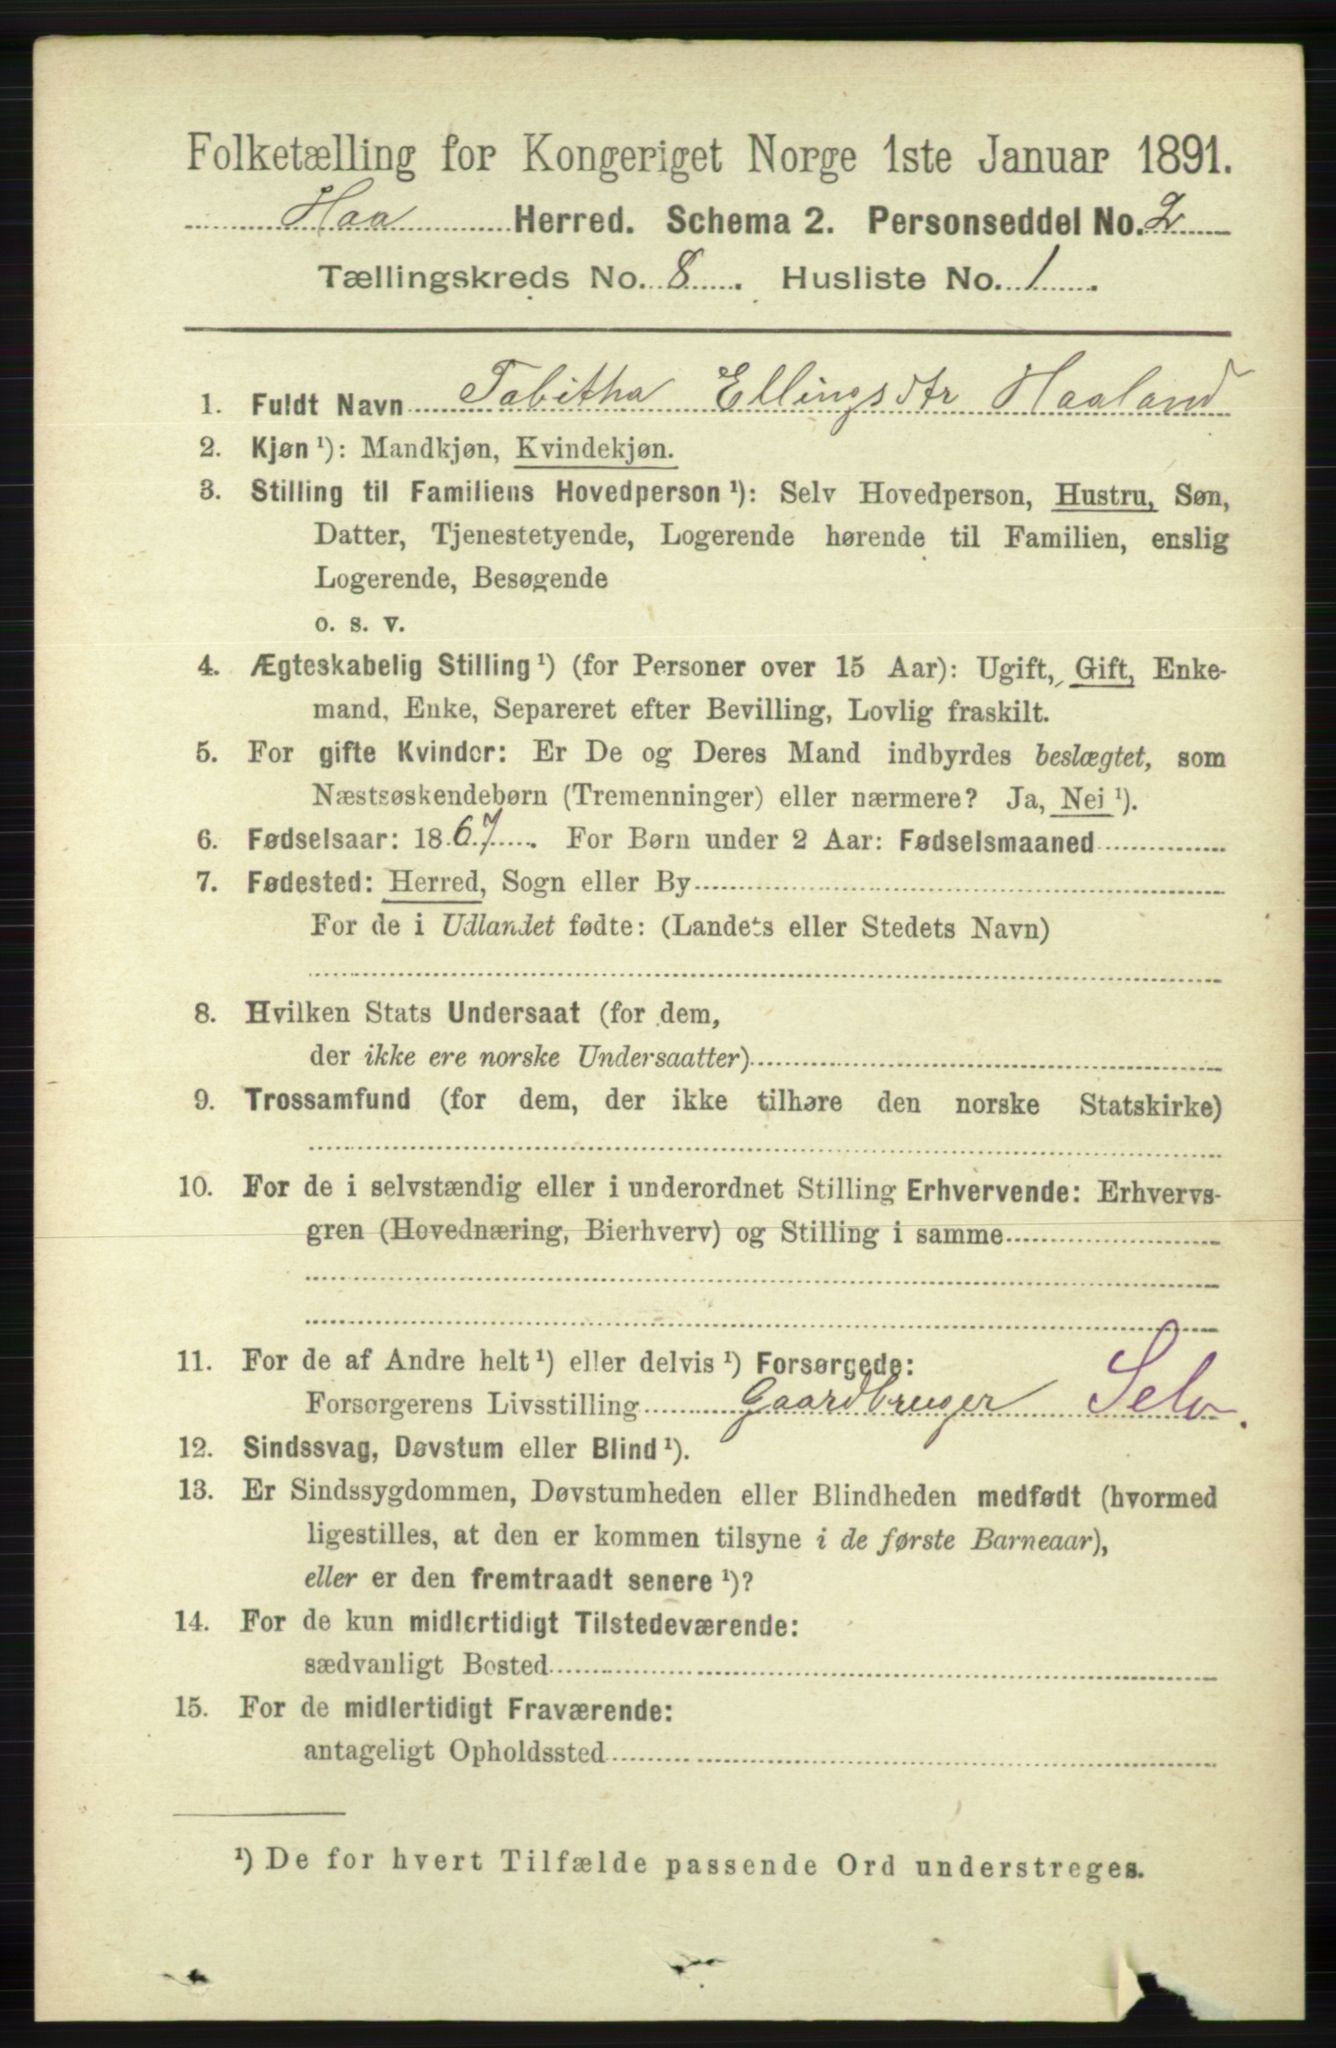 Folketælling for Kongeriget Norge 1ste Januar 1891.
Haa Herred. Schema 2. Personseddel No. 2
Tællingskreds No. 8. Husliste No. 1.
1. Fuldt Navn Tabitha Ellingsdtr Haaland
2. Kjøn ¹): Mandkjøn, Kvindekjøn.
3. Stilling til Familiens Hovedperson ¹): Selv Hovedperson, Hustru, Søn,
Datter, Tjenestetyende, Logerende hørende til Familien, enslig
Logerende, Besøgende
o. s. v.
4. Ægteskabelig Stilling ¹) (for Personer over 15 Aar): Ugift, Gift, Enke-
mand, Enke, Separeret efter Bevilling, Lovlig fraskilt.
5. For gifte Kvinder: Er De og Deres Mand indbyrdes beslægtet, som
Næstsøskendebørn (Tremenninger) eller nærmere? Ja, Nei ¹).
6. Fødselsaar: 1867. For Børn under 2 Aar: Fødselsmaaned
7. Fødested: Herred, Sogn eller By
For de i Udlandet fødte: (Landets eller Stedets Navn)
8. Hvilken Stats Undersaat (for dem,
der ikke ere norske Undersaatter)
9. Trossamfund (for dem, der ikke tilhøre den norske Statskirke)
10. For de i selvstændig eller i underordnet Stilling Erhvervende: Erhvervs-
gren (Hovednæring, Bierhverv) og Stilling i samme
11. For de af Andre helt ¹) eller delvis ¹) Forsørgede:
Forsørgerens Livsstilling Gaardbruger Selv.
12. Sindssvag, Døvstum eller Blind ¹).
13. Er Sindssygdommen, Døvstumheden eller Blindheden medfødt (hvormed
ligestilles, at den er kommen tilsyne i de første Barneaar),
eller er den fremtraadt senere ¹)?
14. For de kun midlertidigt Tilstedeværende:
sædvanligt Bosted
15. For de midlertidigt Fraværende:
antageligt Opholdssted
¹) De for hvert Tilfælde passende Ord understreges.